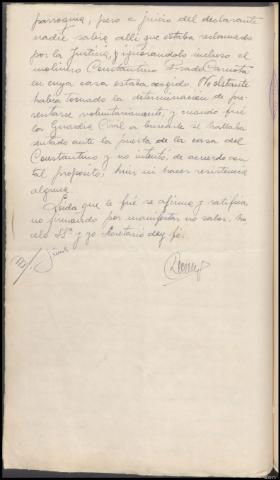 parroquia, pero a juicio del declarante
nadie sabía allí que estaba reclamado
por la Justicia, ignorandolo incluso el
molinero Constantino Prada
en cuya casa estaba acogido. Que
había tomado la determinación de pre-
sentarse voluntariamente, y cuando fué
la Guardia Civil a buscarle se hallaba
sentado ante la puerta de la casa del
Constantino y no intentó, de acuerdo con
tal propósito, huir ni hacer resistencia
alguna.
Leida que le fué se afirma y ratifica
no firmando por manifestar no saber,
S.Sª y yo Secretario doy fé.